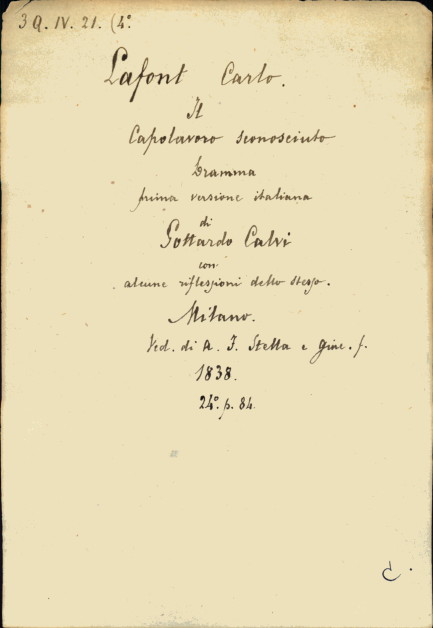 3 Q. IV. 21. (4º
Lafont Carlo.
Il
Capolavoro sconosciuto
Dramma
prima versione italiana
di
Gottardo Calvi
con
alcune riflessioni dello stesso.
Milano.
Ved. di A. F. Stella e Giac. f.
1838.
24º. p. 84.
C.